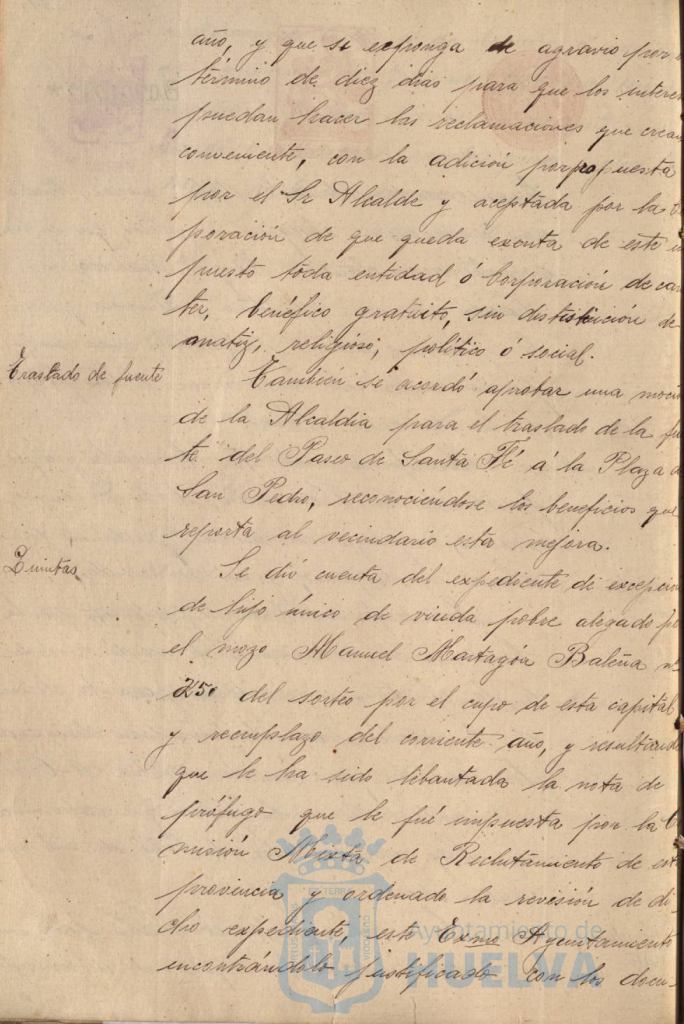 año, y que se exponga de agravio por
término de diez dias para que los intere
puedan hacer las reclamaciones que crean
conveniente, con la adición porpropuesta
por el Sr Alcalde y aceptada por la
poración de que queda exenta de este
puesto toda entidad ó Corporación de cará
ter, benéfico gratuito, sin distinción de
matiz, religioso, político ó social.
Traslado de fuente
También se acordó aprobar una moci
de la Alcaldia para el traslado de la fu
te del Paseo de Santa Fé á la Plaza d
San Pedro, reconociéndose los beneficios que
reporta al vecindario esta mejora.
Quintas
Se dió cuenta del expediente de excepción
de hijo único de viuda pobre alegado p
el mozo Manuel Martagón Baleña nº
250 del sorteo por el cupo de esta capital
y reemplazo del corriente año, y resultando
que le ha sido lebantada la nota de
prófugo que le fué impuesta por la Co
misión Mixta de Reclutamiento de est
provincia y ordenado la revisión de di-
cho expediente, este Exmo Ayuntamiento
encontrándolo justificado con los docu-
Ayuntamiento de
HUELVA